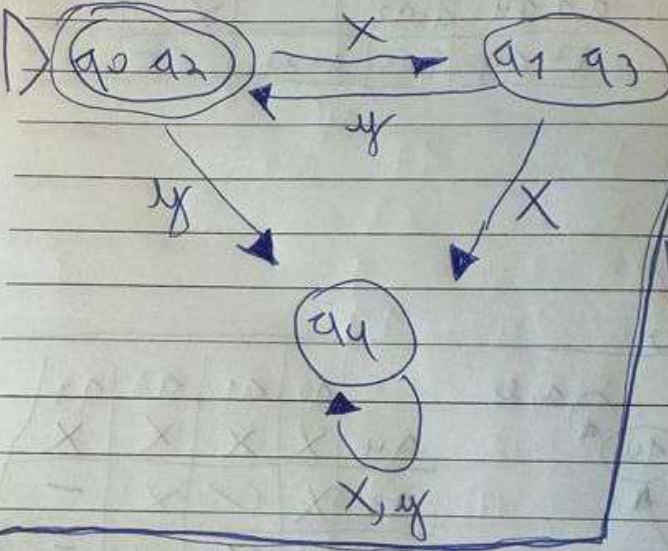 X
q0 q2
q1 q3
y
y
X
q4
X, y